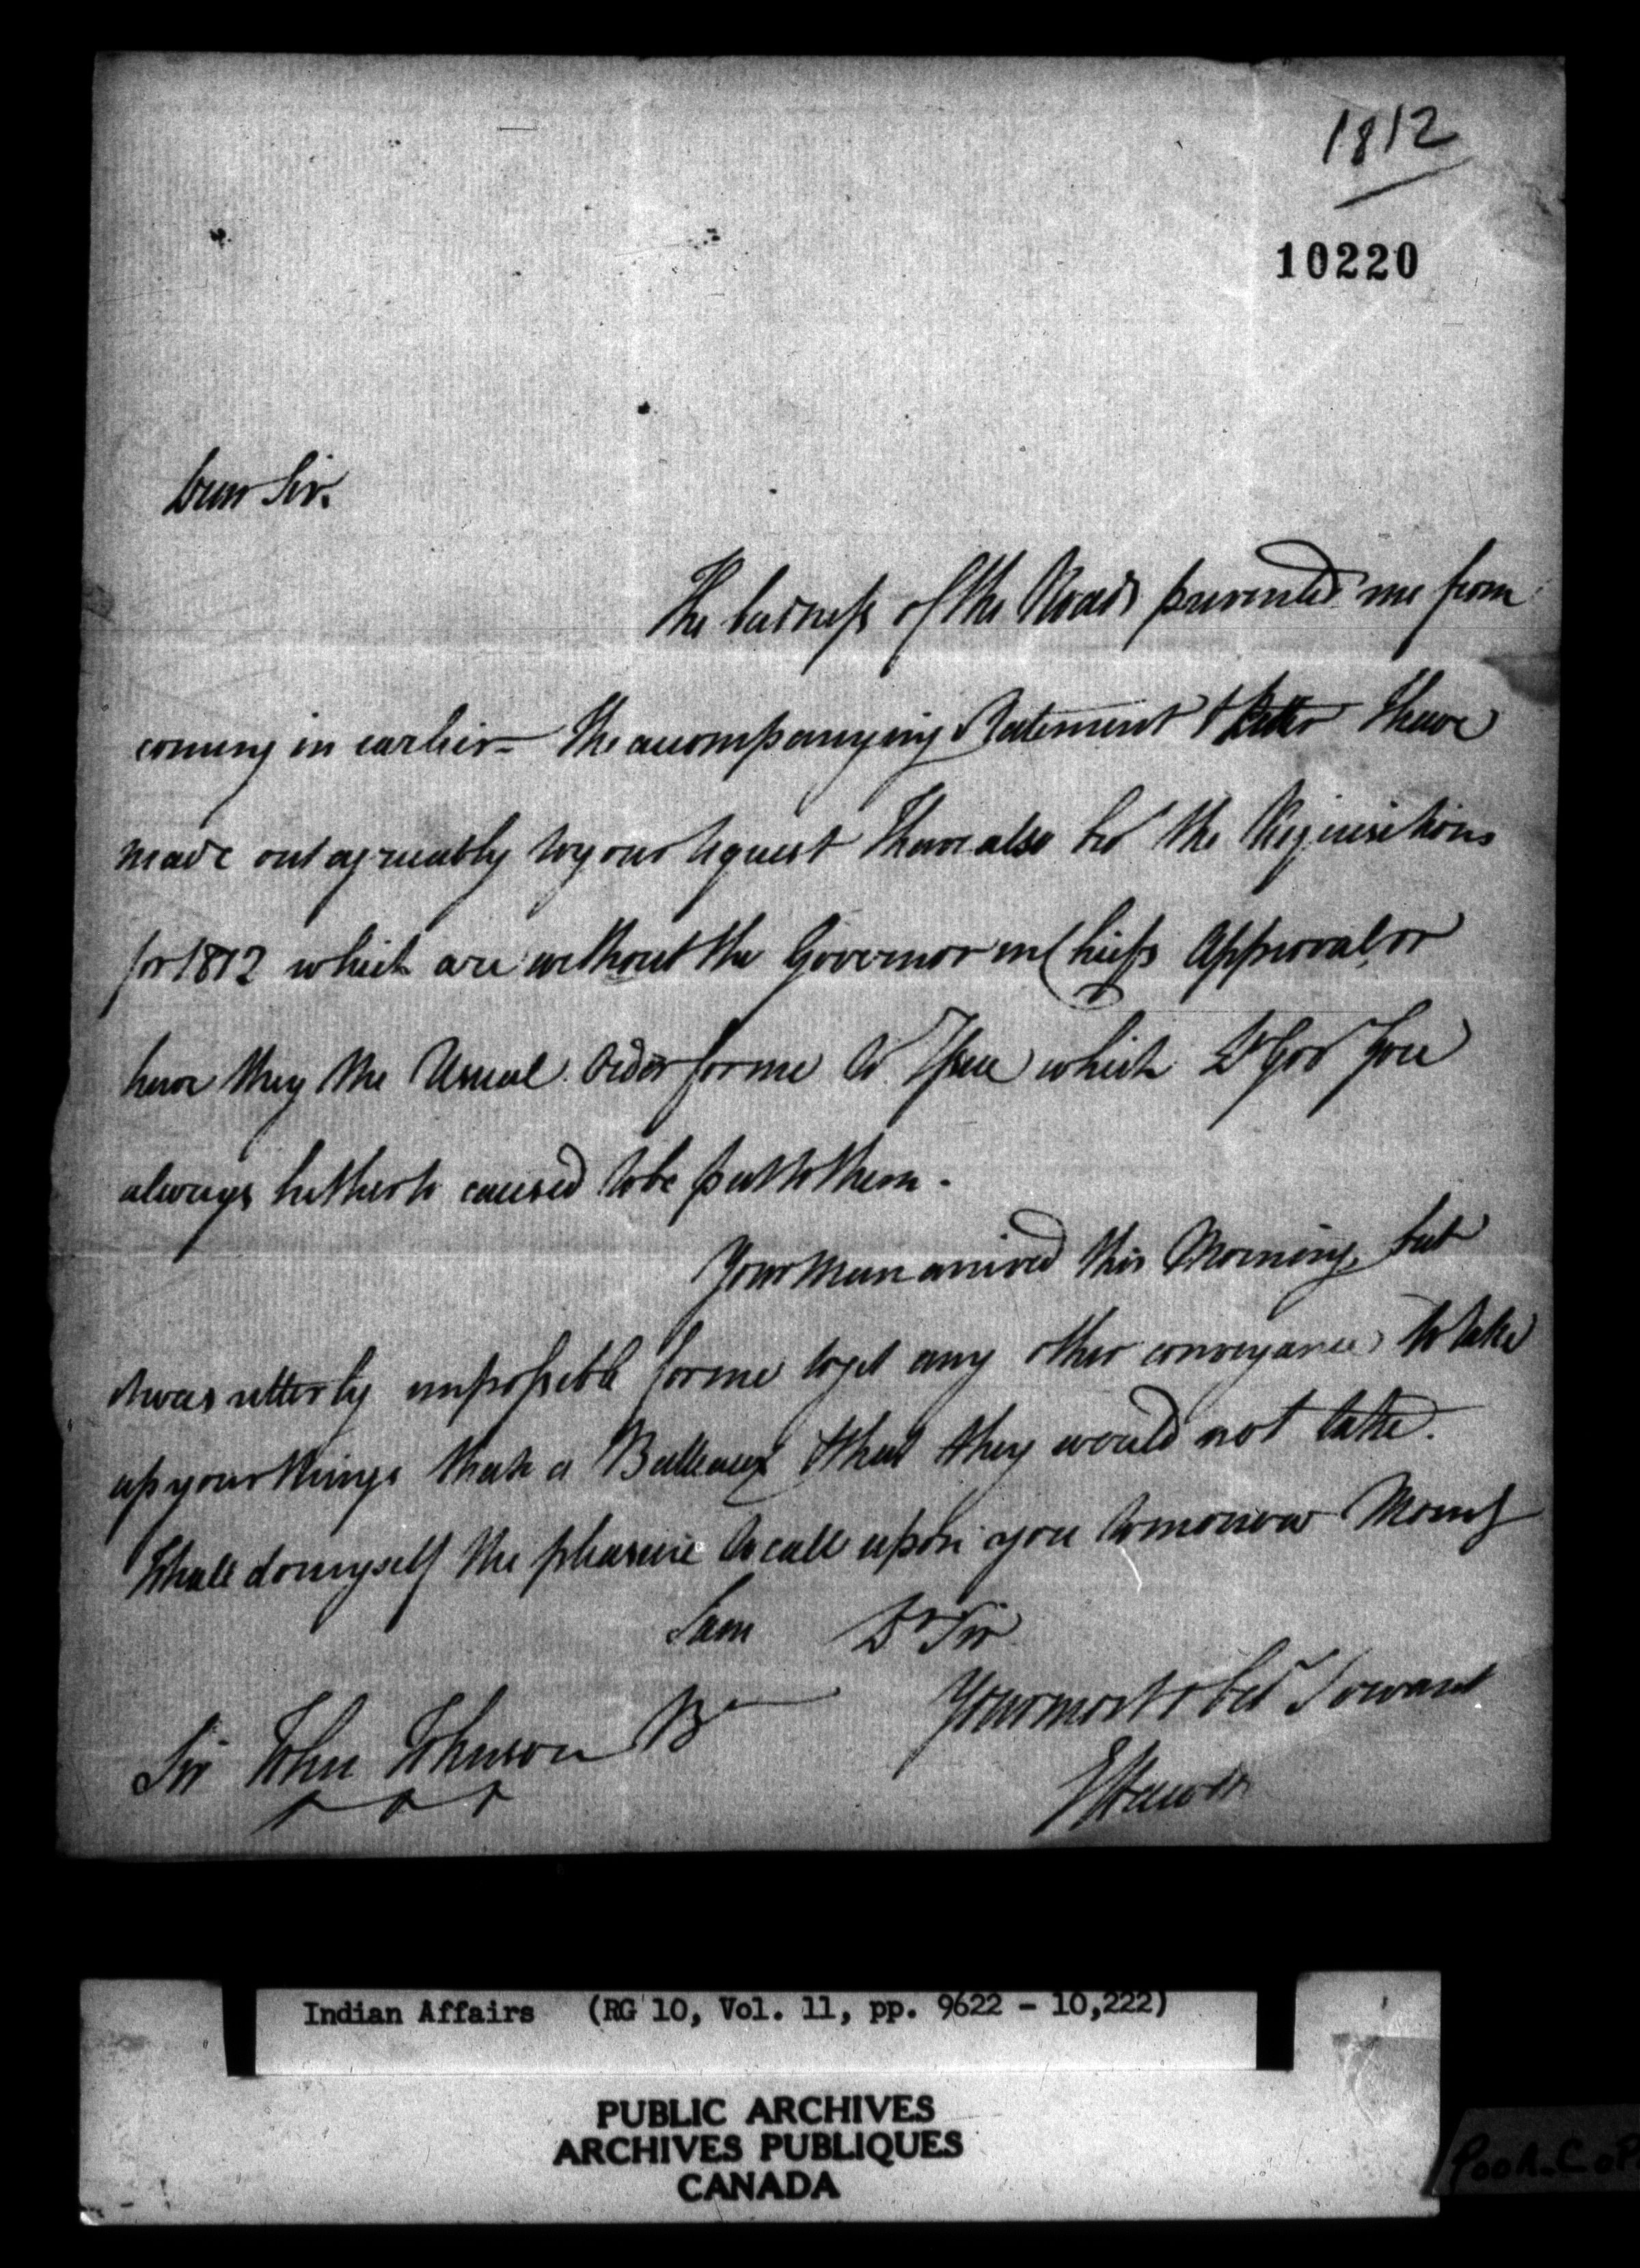 1812
10220
Dear Sir.
The badness of the Roads prevented me from
coming in earlier – The accompanying Statement & letter I have
made out agreeably to your request I have also led the Requisitions
for 1812 which are without the Governor in Chiefs Approval, or
have they the Usual Order for me to Issue which You
always hitherto caused to be put to them.
Your Man arrived this Morning, but
it was utterly impossible for me to get any other conveyance to take
up your things than a Batteaux & that they would not take.
I shall do myself the pleasure to call upon you tomorrow Morng
I am Dr Sir
Your most obedt Servant
Sir John Johnson Bt
Indian Affairs (RG 10, Vol. 11, pp. 9622 - 10,222)
PUBLIC ARCHIVES
ARCHIVES PUBLIQUES
CANADA
Poor Cop